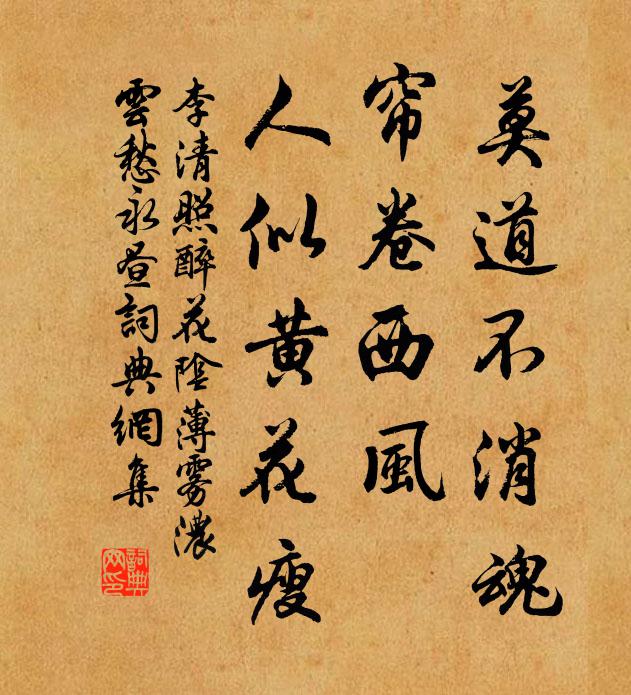 莫道不消魂
帘卷西風
人似黄花瘦
李清照醉花陰薄雾濃
雲愁永昼詞典網集
詞典网印